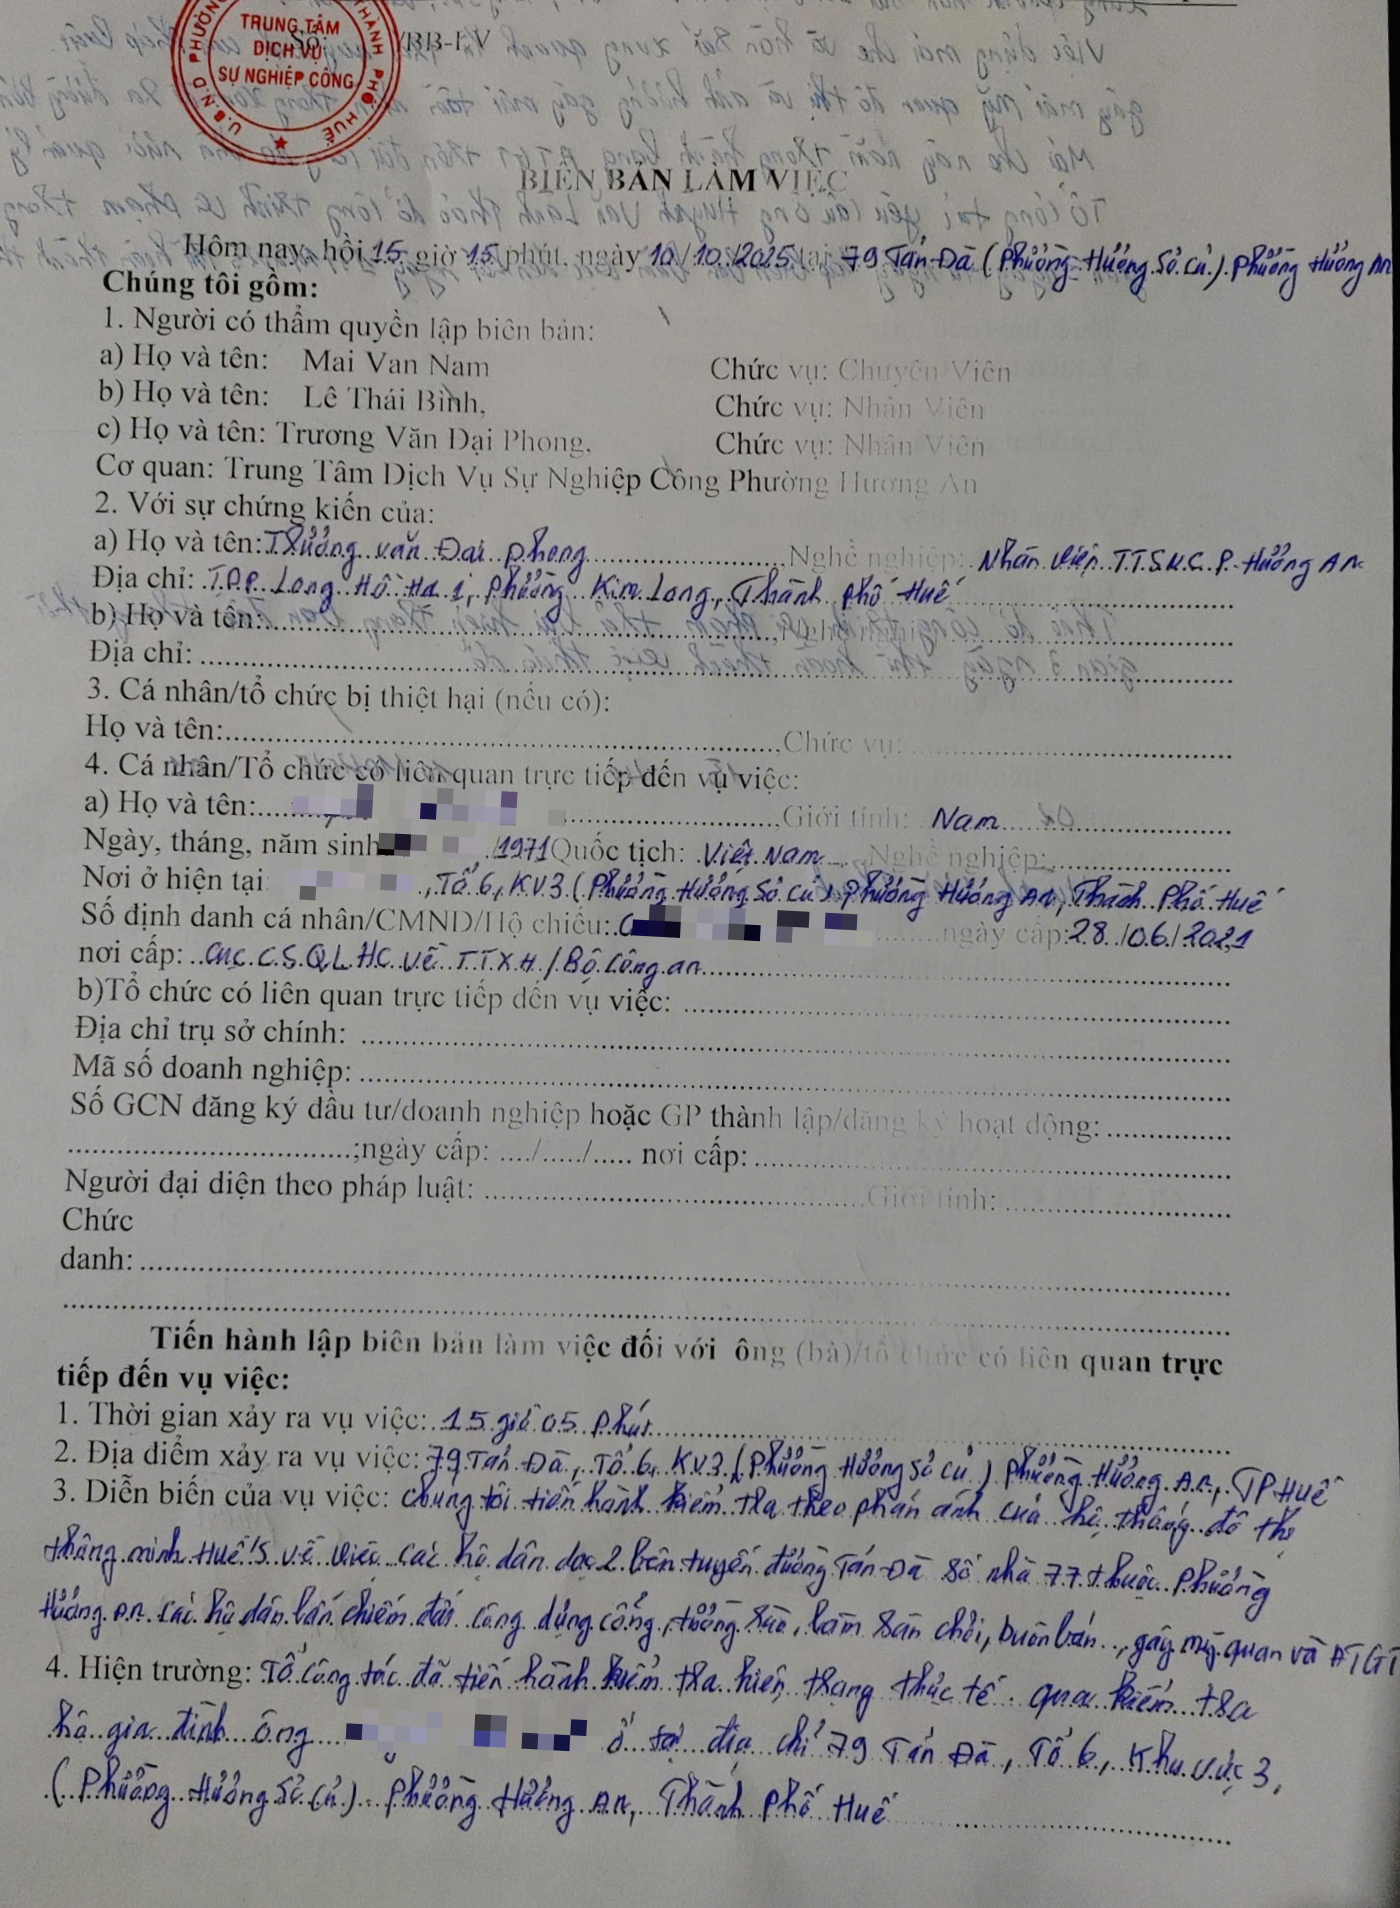 TRUNG TÂM
DỊCH VỤ
SỰ NGHIỆP CÔNG
THÀNH PHỐ HUẾ
U.B.N.D PHƯỜNG
Số /BB-LV
BIÊN BẢN LÀM VIỆC
Hôm nay, hồi 15 giờ 15 phút, ngày 10/10/2025 tại 79 Tản Đà (Phường Hương Sơ cũ) Phường Hương An
Chúng tôi gồm:
1. Người có thẩm quyền lập biên bản:
a) Họ và tên: Mai Van Nam Chức vụ: Chuyên Viên
b) Họ và tên: Lê Thái Bình, Chức vụ: Nhân Viên
c) Họ và tên: Trương Văn Đại Phong, Chức vụ: Nhân Viên
Cơ quan: Trung Tâm Dịch Vụ Sự Nghiệp Công Phường Hương An
2. Với sự chứng kiến của:
a) Họ và tên: Trương Văn Đại Phong Nghề nghiệp: Nhân viên T.T.S.N.C P. Hương An
Địa chỉ: T.D.P Long Hồ Hạ 1, Phường Kim Long, Thành phố Huế
b) Họ và tên:
Địa chỉ:
3. Cá nhân/tổ chức bị thiệt hại (nếu có):
Họ và tên: Chức vụ:
4. Cá nhân/Tổ chức có liên quan trực tiếp đến vụ việc:
a) Họ và tên: Giới tính: Nam
Ngày, tháng, năm sinh /1971 Quốc tịch: Việt Nam Nghề nghiệp:
Nơi ở hiện tại , Tổ 6, KV3 (Phường Hương Sơ cũ) Phường Hương An, Thành Phố Huế
Số định danh cá nhân/CMND/Hộ chiếu: ngày cấp: 28/06/2021
nơi cấp: Cục C.S.QLHC về T.T.X.H / Bộ Công an
b)Tổ chức có liên quan trực tiếp đến vụ việc:
Địa chỉ trụ sở chính:
Mã số doanh nghiệp:
Số GCN đăng ký đầu tư/doanh nghiệp hoặc GP thành lập/đăng ký hoạt động:
;ngày cấp: ..../...../..... nơi cấp:
Người đại diện theo pháp luật: Giới tính:
Chức
danh:
Tiến hành lập biên bản làm việc đối với ông (bà)/tổ chức có liên quan trực
tiếp đến vụ việc:
1. Thời gian xảy ra vụ việc: 15 giờ 05 phút
2. Địa điểm xảy ra vụ việc: 79 Tản Đà, Tổ 6, KV3 (Phường Hương Sơ cũ) Phường Hương An, TP Huế
3. Diễn biến của vụ việc: chúng tôi tiến hành kiểm tra theo phản ánh của hệ thống đô thị
thông minh Huế S về việc các hộ dân dọc 2 bên tuyến đường Tản Đà số nhà 77 thuộc phường
Hương An các hộ dân lấn chiếm đất công dựng cổng, tường rào, làm sân chơi, buôn bán.., gây mỹ quan và ATGT
4. Hiện trường: Tổ công tác đã tiến hành kiểm tra hiện trạng thực tế. qua kiểm tra
hộ gia đình ông ở tại địa chỉ 79 Tản Đà, Tổ 6, Khu vực 3,
(Phường Hương Sơ cũ) Phường Hương An, Thành Phố Huế